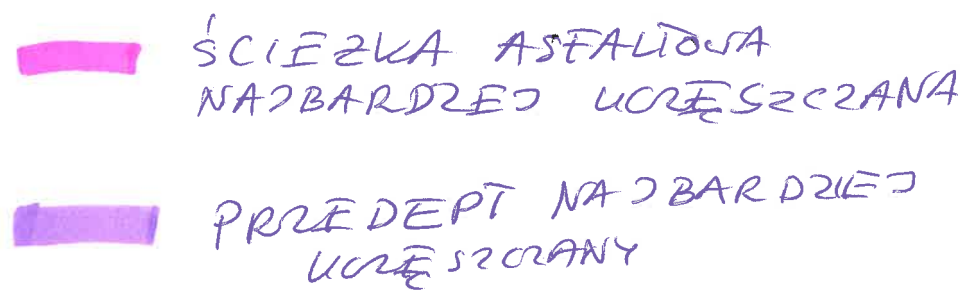 ŚCIEŻKA ASFALTOWA
NAJBARDZIEJ UCZĘSZCZANA
PRZEDEPT NAJBARDZIEJ
UCZĘSZCZANY